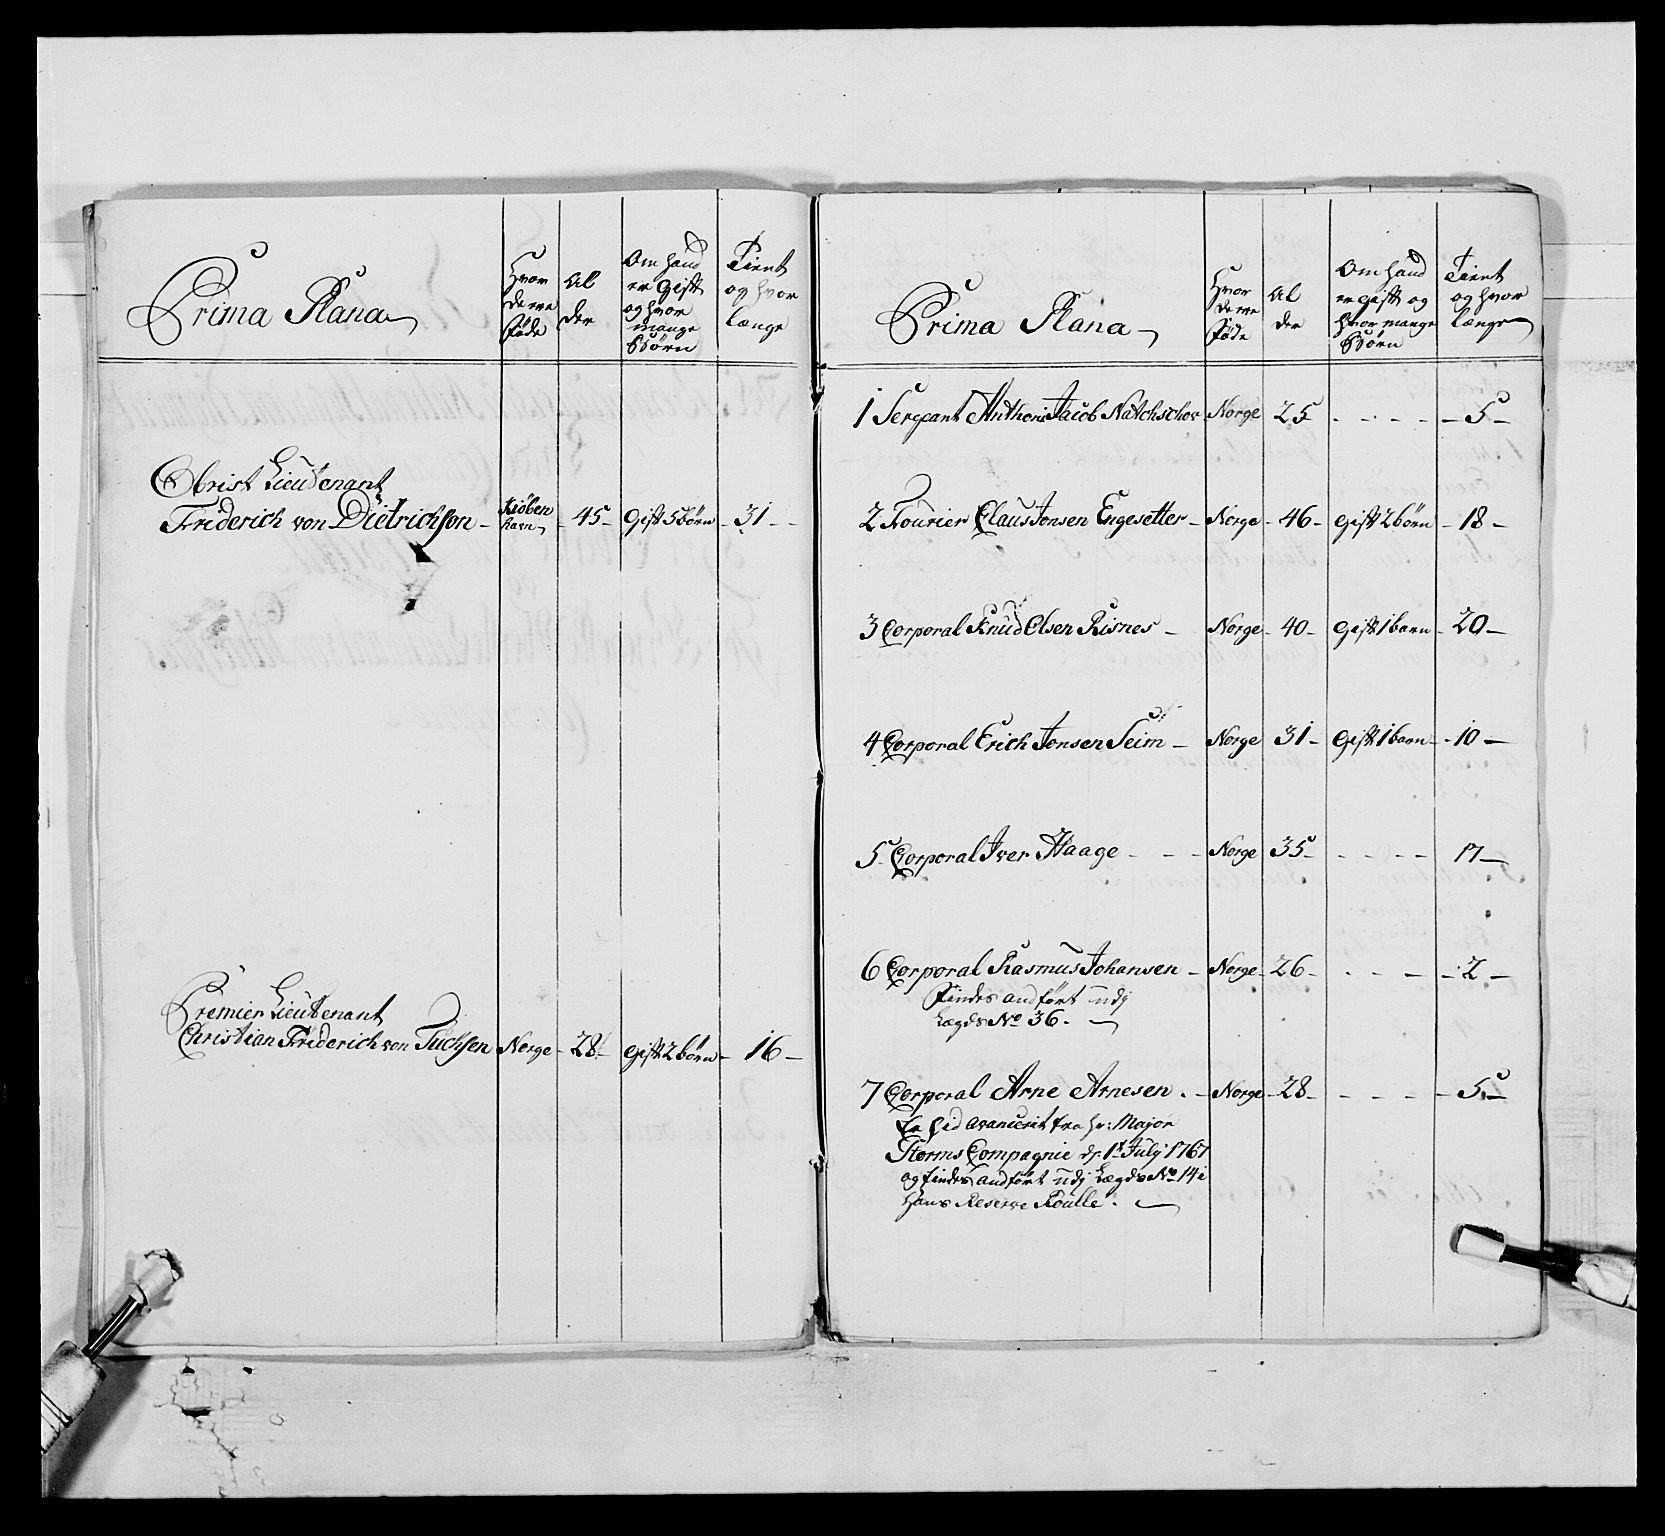 Prima Plana
Hvor
de ere
föde
Al
der
Om hand
er gift
og hvor
mange
Börn
Tient
og hvor
længe
Obrist Lieutenant
Friderich von Dietrichson - Kiöben
havn - 45 - Gift 5 börn - 31 -
Premier Lieutenant
Christian Friderich von Tuchsen Norge - 28 - gift 2 börn - 16 -
Prima Plana
Hvor
de ere
föde
Al
der
Om hand
er gift og
hvor mange
Börn
Tient
og hvor
længe
1 Sergeant Anthoni Jacob Natchschov Norge 25 - - - - - 5 -
2 Fourier Claus Jensen Engesetter - Norge - 46 - gift 2 börn - 18 -
3 Corporal Knud Olsen Risnes - Norge - 40 - gift 1 barn - 20 -
4 Corporal Erich Jonsen Seim - Norge 31 - gift 1 barn - 10 -
5 Corporal Iver Haage - - - Norge 35 - - - - - 17 -
6 Corporal Rasmus Johansen - Norge - 26 - - - - - 2 -
Findes andfört udj
Lægds No 36. -
7 Corporal Arne Arnesen . - Norge - 28 - - - - - 5 -
Er hid avancerit fra hr: Major
Storms Compagnie d. 1t July 1767
og findes andfört udj Lægds No 14 i
hans Reserve Roulle. -